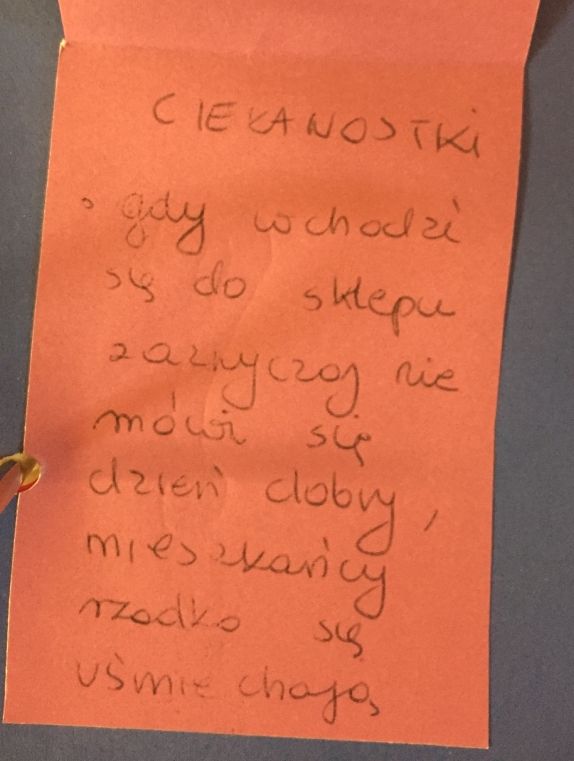 CIEKAWOSTKI
• gdy wchodzi
się do sklepu
zazwyczaj nie
mówi się
dzień dobry,
mieszkańcy
rzadko się
uśmiechają